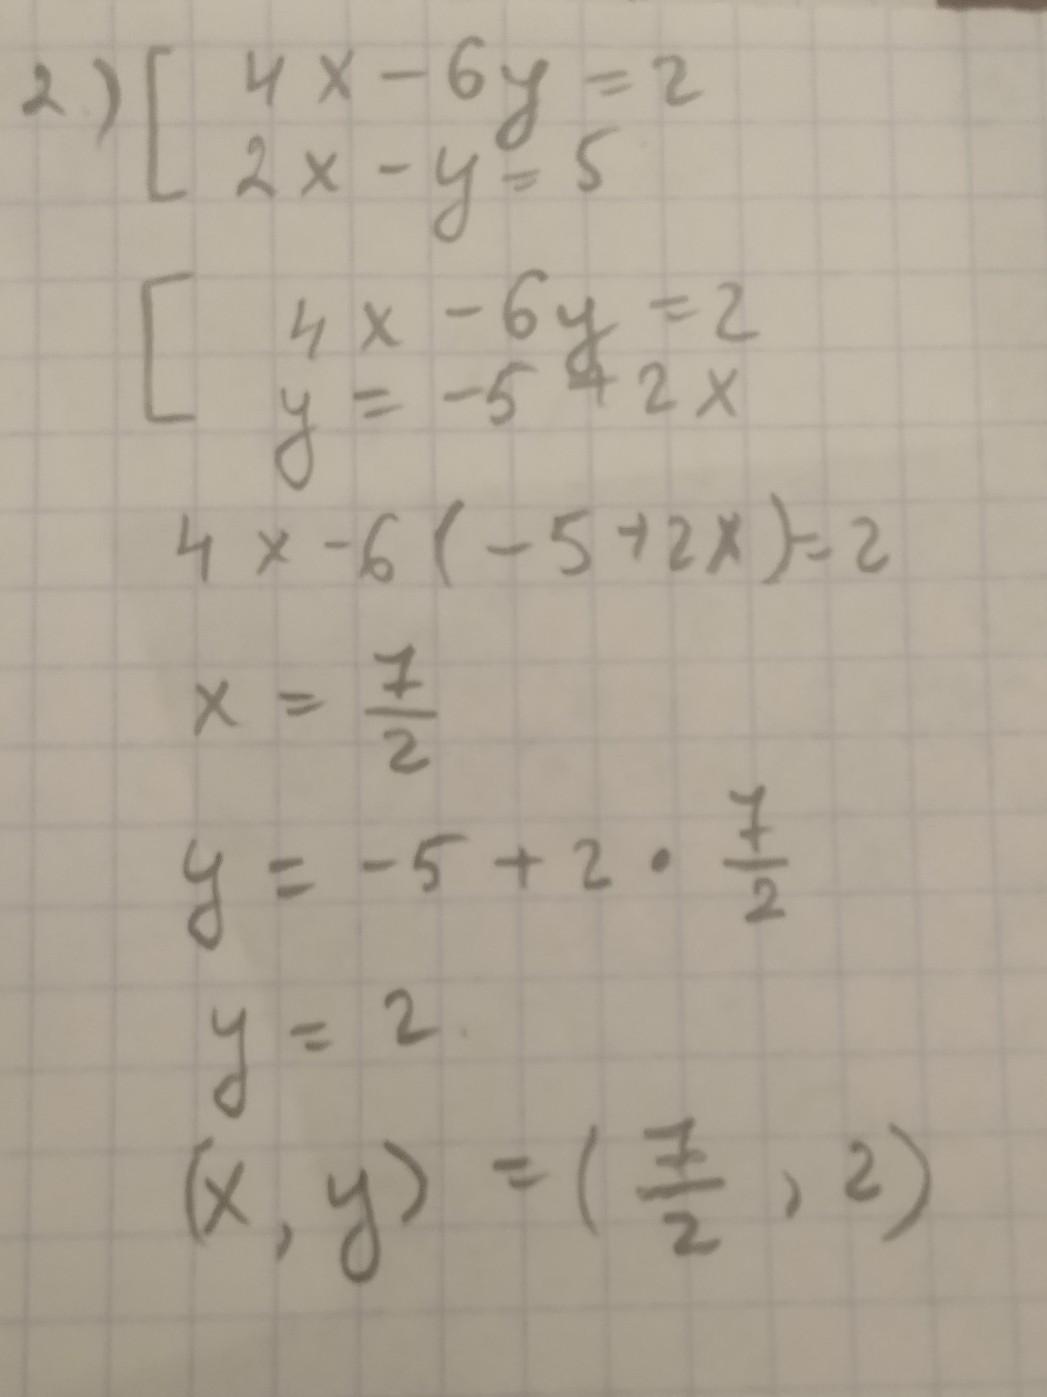 2.) [ 4x - 6y = 2
2x - y = 5
[ 4x - 6y = 2
y = -5 + 2x
4x - 6(-5+2x) = 2
x = 7/2
y = -5 + 2 · 7/2
y = 2
(x, y) = (7/2, 2)